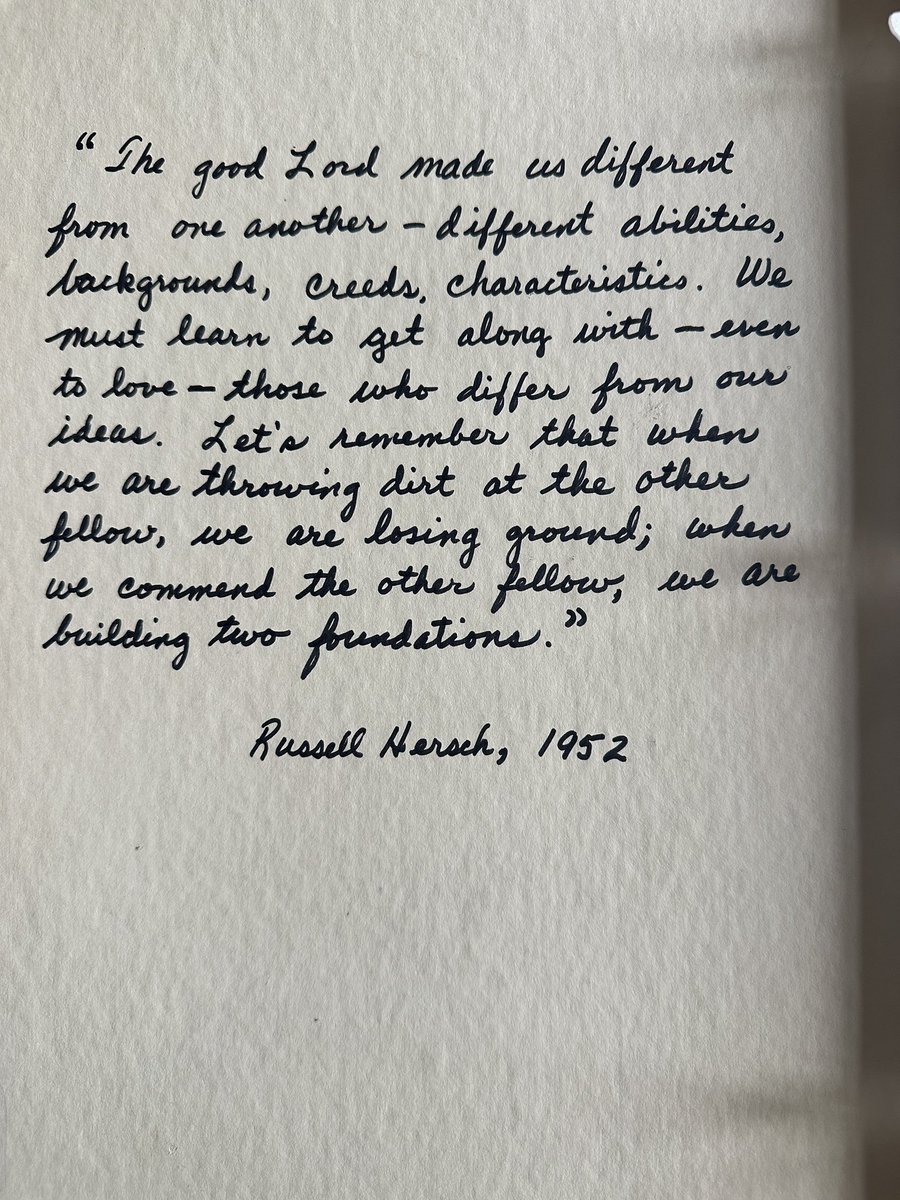 “The good Lord made us different
from one another – different abilities,
backgrounds, creeds, characteristics. We
must learn to get along with – even
to love – those who differ from our
ideas. Let's remember that when
we are throwing dirt at the other
fellow, we are losing ground; when
we commend the other fellow, we are
building two foundations.”
Russell Hersch, 1952